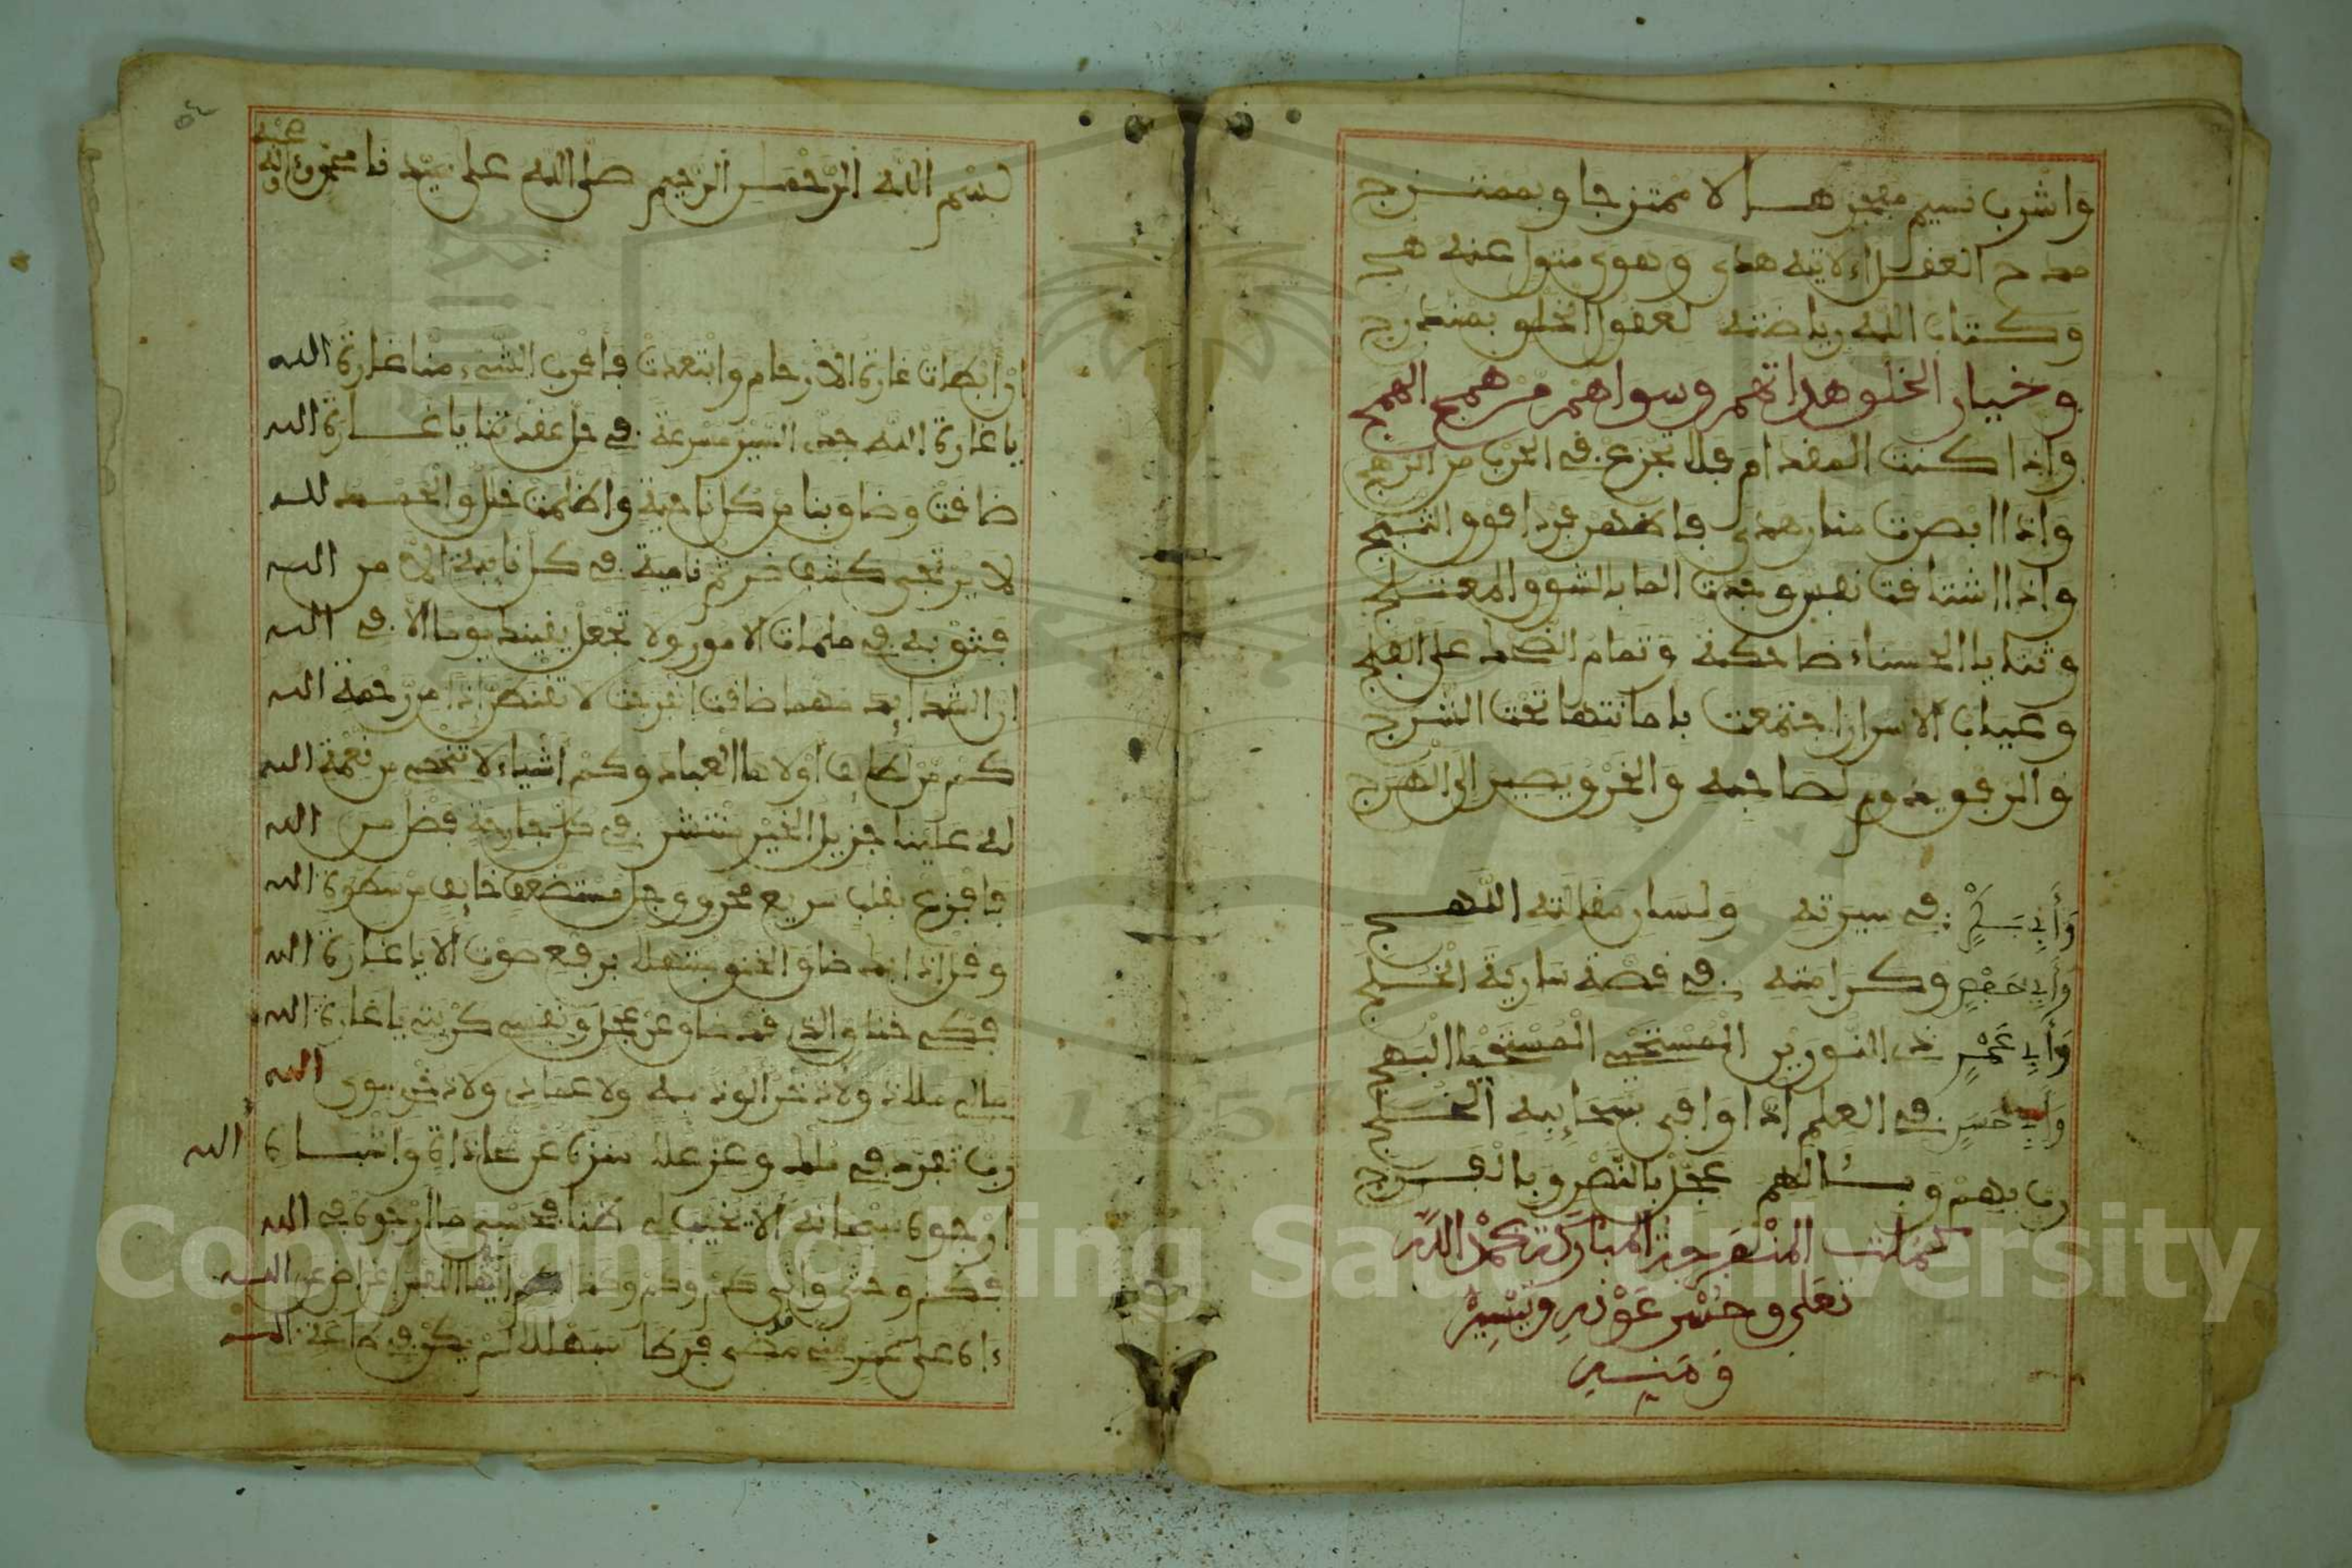 واشرب تسنيم مفجرها لا ممتزجا وبممتزج
مدح العقل الاتيه هدى وهوى متول عنه هج
وكتاب الله رياضته لعقول الخلق بمندرج
وخيار الخلق هداتهم وسواهم من همج الهمج
واذا كنت المقدام فلا تجزع في الحرب من الرهج
واذا ابصرت منار هدى فاظهر فردا فوق الثبج
واذا اشتاقت نفس وجدت الما بالشوق المعتلج
وثنايا الحسناء ضاحكة وتمام الضحك على الفلج
وعياب الاسرار اجتمعت بامانتها تحت الشرج
والرفق يدوم لصاحبه والخرق يصير الى الهرج
وأبي بكر في سيرته ولسان مقالته اللهج
وأبي حفص وكرامته في قصة سارية الخلج
وأبي عمر ذي النورين المستحي المستحيا البهج
وأبي حسن في العلم اذا وافى بسحايبه الخلج
رب بهم وبئالهم عجل بالنصر وبالفرج
كملت المنفرجة المباركة بحمد الله
تعلى وحسن عونه ويسره
ومنه
بسم الله الرحمن الرحيم صلى الله على سيدنا محمد وءاله
وصحبه
ان ابطات غارة الارحام وابتعدت فاقرب الشيء منا غارة الله
يا غارة الله جدي السير مسرعة في حل عقدتنا يا غارة الله
ضاقت وضاق بنا من كل ناحية واظلمت قل والحمد لله
لا يرتجى كشف ضر ثم نامية في كل نايبة الا من الله
فثق به في ملمات الامور ولا تجعل يقينك يوما الا في الله
ان الشدايد مهما ضاقت انفرجت لا تقنطن اذا من رحمة الله
كم من لطايف اولاها العباد وكم اشياء لا تحصى من نعمة الله
له علينا جزيل الخير منتشر في كل جارحة فضل من الله
فافزع بقلب سريع محرق وجل مستضعف خايف من سطوة الله
وقل اذا ضاق الخنق مبتهلا برفع صوت الا يا غارة الله
فكي خناق الذي قد ضاق عن عجل ونفسي كربتي يا غارة الله
مالي ملاذ ولا ذخر الوذ به ولا عماد ولا ذخر سوى الله
رب تفرد في ملكه وعز علا
ارجوه سبحانه ألا يخيب لي ظنا فحسبي ما ارجوه في الله
واه على عمر مني مضى فرطا سبهللا لم يكن في طاعة الله